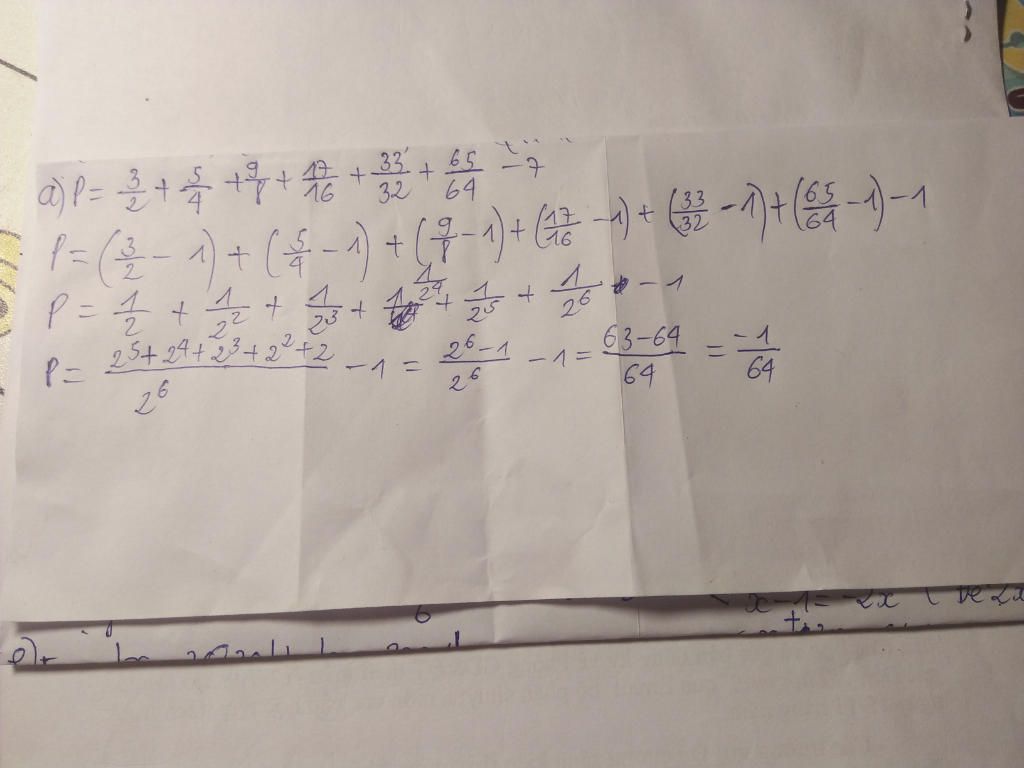 a) P = 3/2 + 5/4 + 9/8 + 17/16 + 33/32 + 65/64 - 7
P = (3/2 - 1) + (5/4 - 1) + (9/8 - 1) + (17/16 - 1) + (33/32 - 1) + (65/64 - 1) - 1
P = 1/2 + 1/2² + 1/2³ + 1/2⁴ + 1/2⁵ + 1/2⁶ - 1
P = (2⁵ + 2⁴ + 2³ + 2² + 2)/2⁶ - 1 = (2⁶ - 1)/2⁶ - 1 = (63 - 64)/64 = -1/64
6
x - 1 = -2x